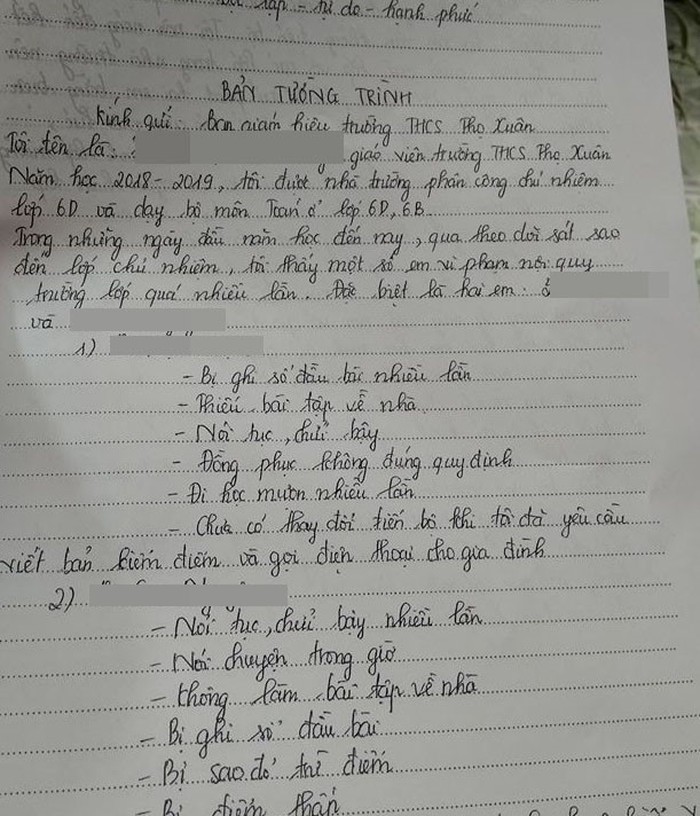 lập - tự do - hạnh phúc
BẢN TƯỜNG TRÌNH
Kính gửi: Ban giám hiệu trường THCS Thọ Xuân
Tôi tên là:
giáo viên trường THCS Thọ Xuân
Năm học 2018 - 2019, tôi được nhà trường phân công chủ nhiệm
lớp 6D và dạy bộ môn Toán ở lớp 6D, 6B
Trong những ngày đầu năm học đến nay, qua theo dõi sát sao
đến lớp chủ nhiệm, tôi thấy một số em vi phạm nội quy
trường lớp quá nhiều lần. Đặc biệt là hai em:
và
1)
- Bị ghi sổ đầu bài nhiều lần
- Thiếu bài tập về nhà
- Nói tục, chửi bậy
- Đồng phục không đúng quy định
- Đi học muộn nhiều lần
- Chưa có thay đổi tiến bộ khi tôi đã yêu cầu
viết bản kiểm điểm và gọi điện thoại cho gia đình
2)
- Nói tục, chửi bậy nhiều lần
- Nói chuyện trong giờ
- Không làm bài tập về nhà
- Bị ghi sổ đầu bài
- Bị sao đỏ trừ điểm
- Bị điểm thấp